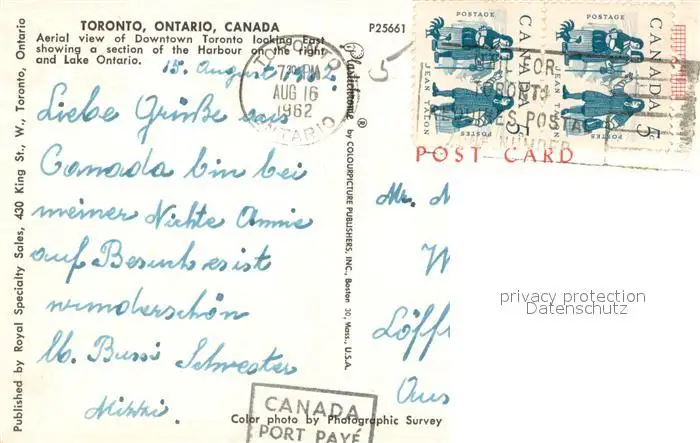 TORONTO, ONTARIO, CANADA
Aerial view of Downtown Toronto looking East
showing a section of the Harbour on the right
and Lake Ontario.
P25661
15. August 1962
Liebe Grüße aus
Canada bin bei
meiner Nichte Annie
auf Besuch es ist
wunderschön
Lb. Bussi Schwester
Mizzi.
TORONTO
PM
AUG 16
1962
ONTARIO
5
Published by Royal Specialty Sales, 430 King St., W., Toronto, Ontario
Plastichrome ® by COLOURPICTURE PUBLISHERS, INC., Boston 30, Mass., U.S.A.
POSTAGE
CANADA
JEAN TALON
POSTES
5¢
POSTAGE
CANADA
JEAN TALON
POSTES
5¢
POST CARD
Mr. N
W
Löff
Aus
privacy protection
Datenschutz
CANADA
PORT PAYÉ
Color photo by Photographic Survey